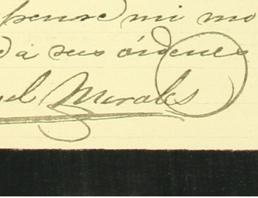 pense mi mo
á sus órdenes
el Morales